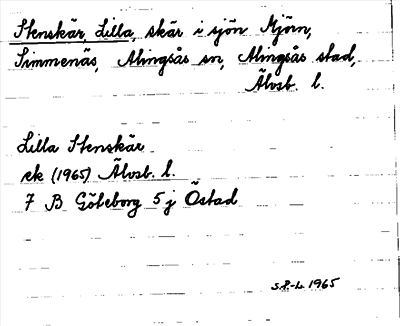 Stenskär, Lilla, skär i sjön Mjörn,
Simmenäs, Alingsås sn, Alingsås stad,
Älvsb. l.
Lilla Stenskär
ek (1965) Älvsb. l.
7 B Göteborg 5 j Östad
S.P-L 1965